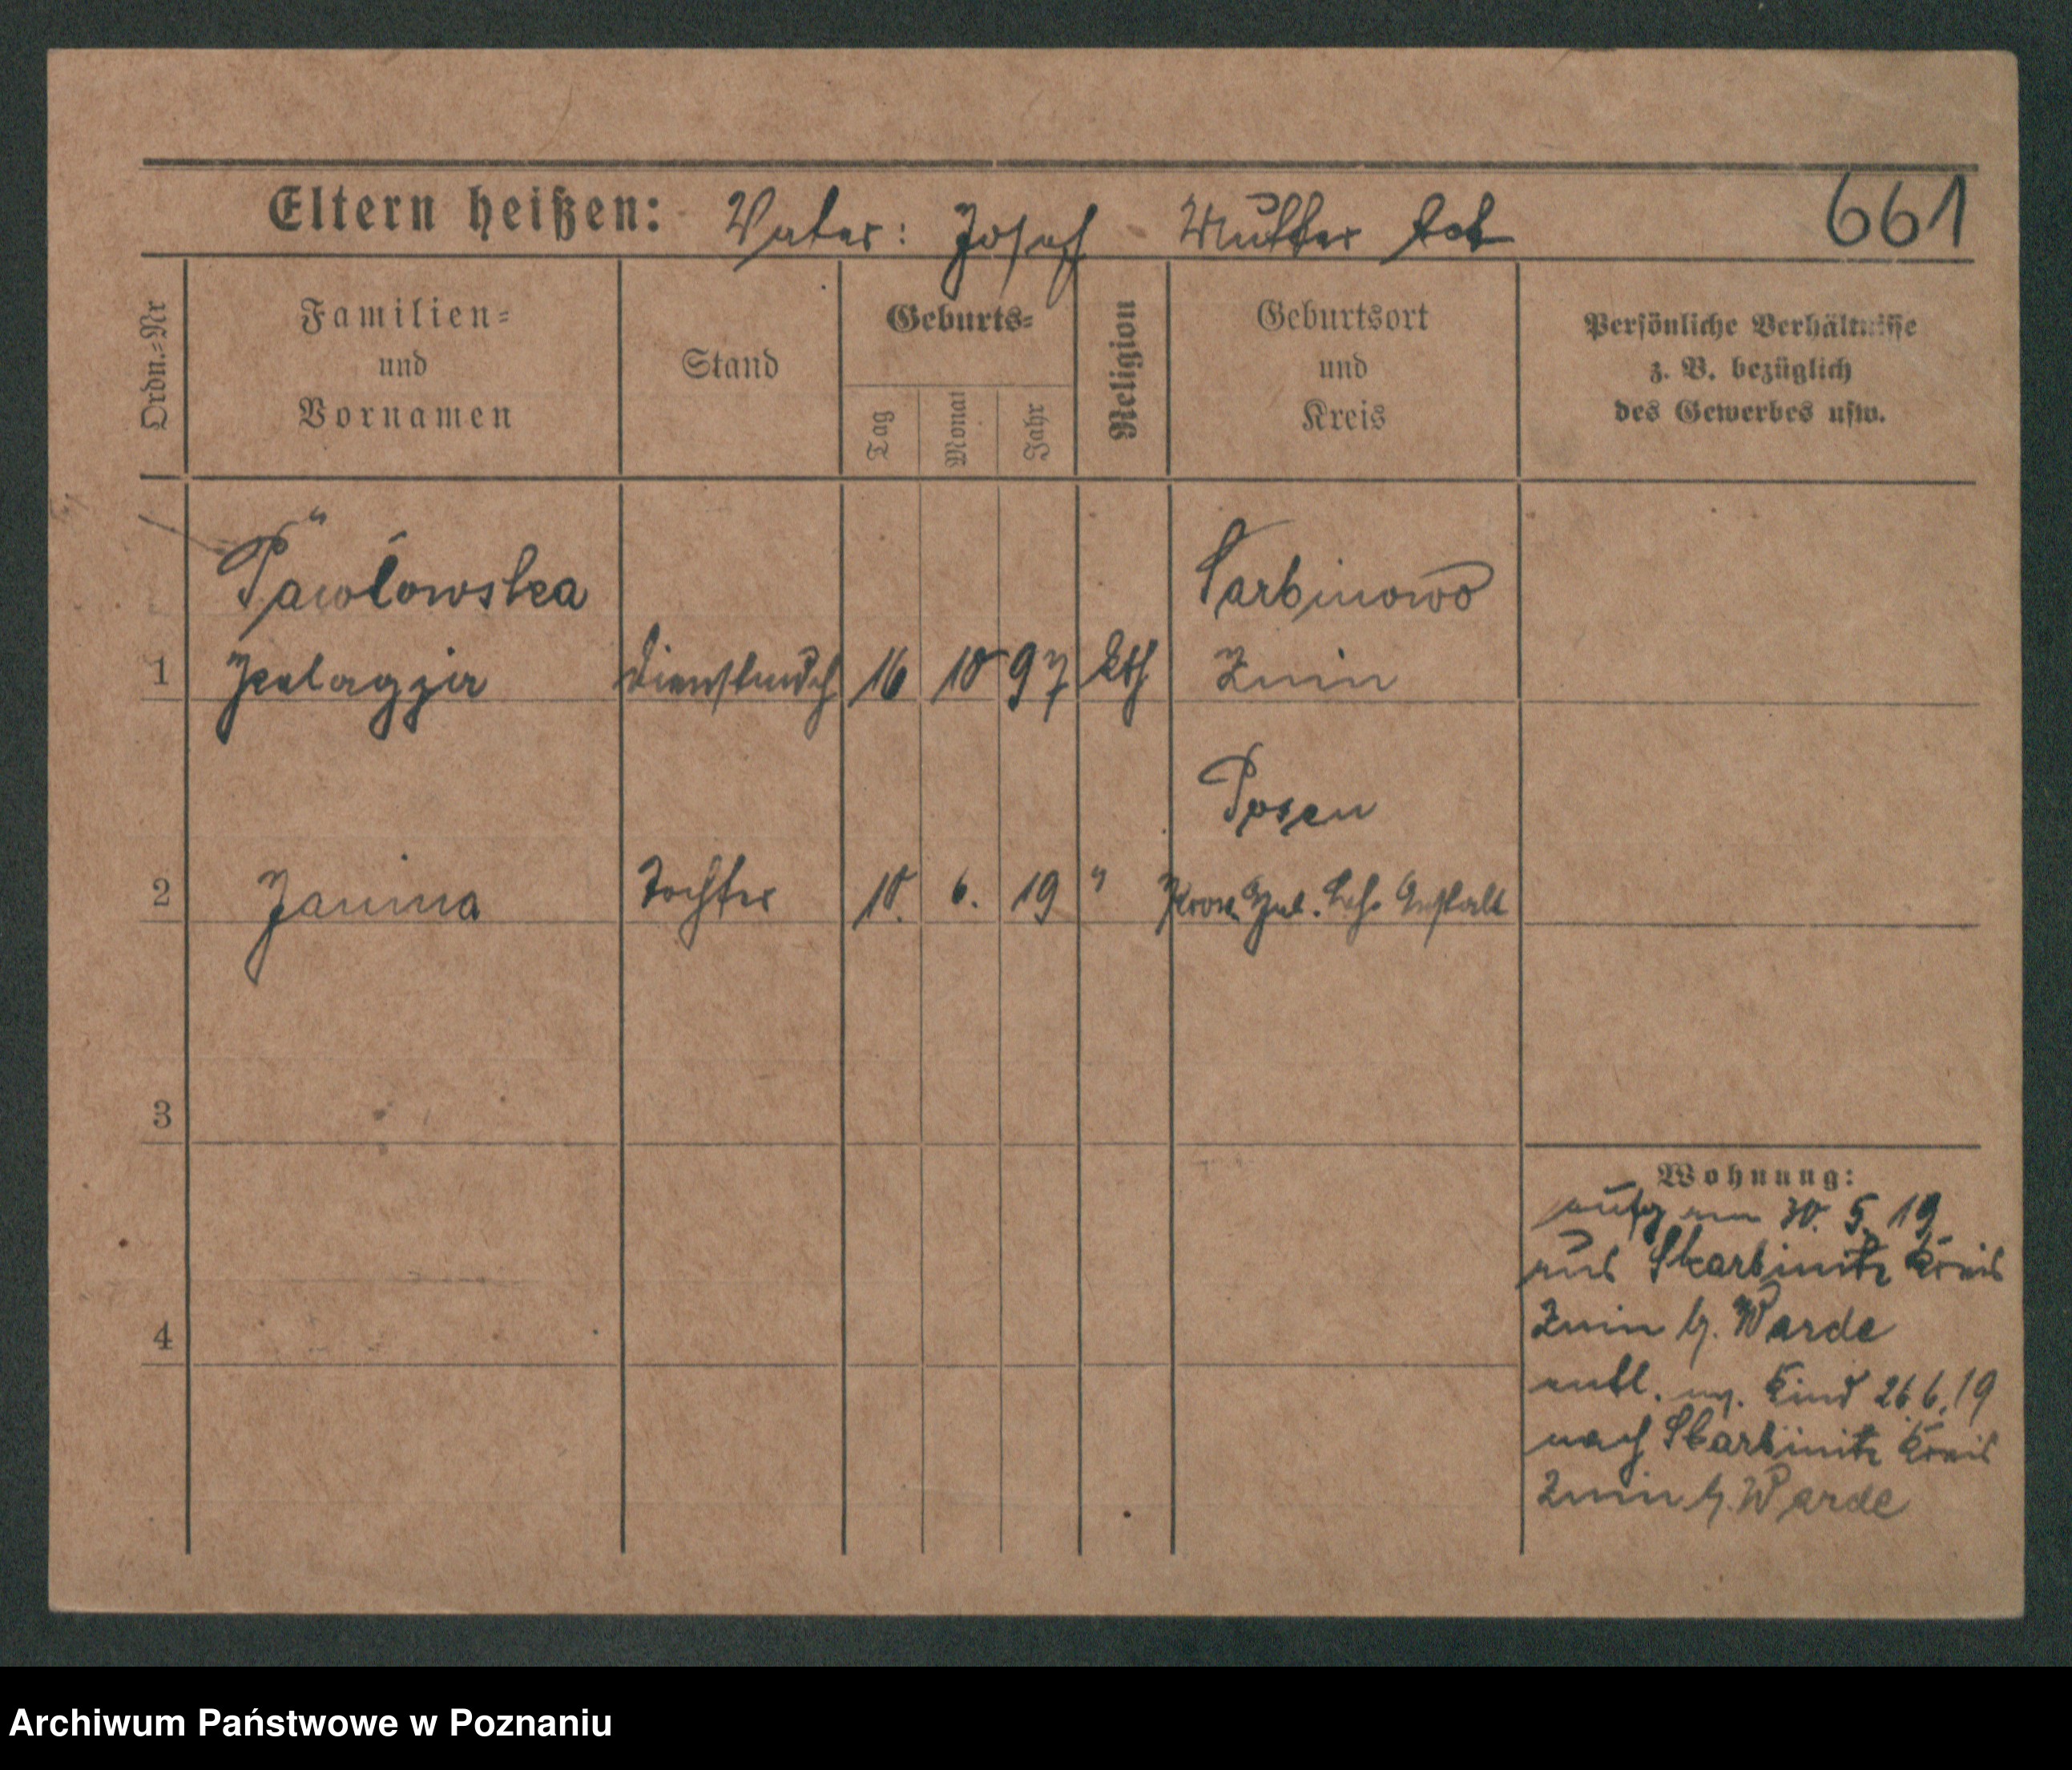 661
Eltern heißen: Vater: Josef Mutter tot
Ordn.=Nr
Familien= und Vornamen
Stand
Geburts=
Tag
Monat
Jahr
Religion
Geburtsort und Kreis
Persönliche Verhältnisse z. B. bezüglich des Gewerbes usw.
Pawłowska Sarbinowo
1 Pelagja Dienstmdch 16 10 97 kth Znin
Posen
2 Janina Tochter 10. 6. 19 " Prov. Heb. Lehr Anstalt
3
4
Wohnung:
aufg am 30. 5. 19
aus Skarbinitz Kreis
Znin b. Warde
entl. m. Kind 26.6.19
nach Skarbinitz Kreis
Znin b. Warde
Archiwum Państwowe w Poznaniu